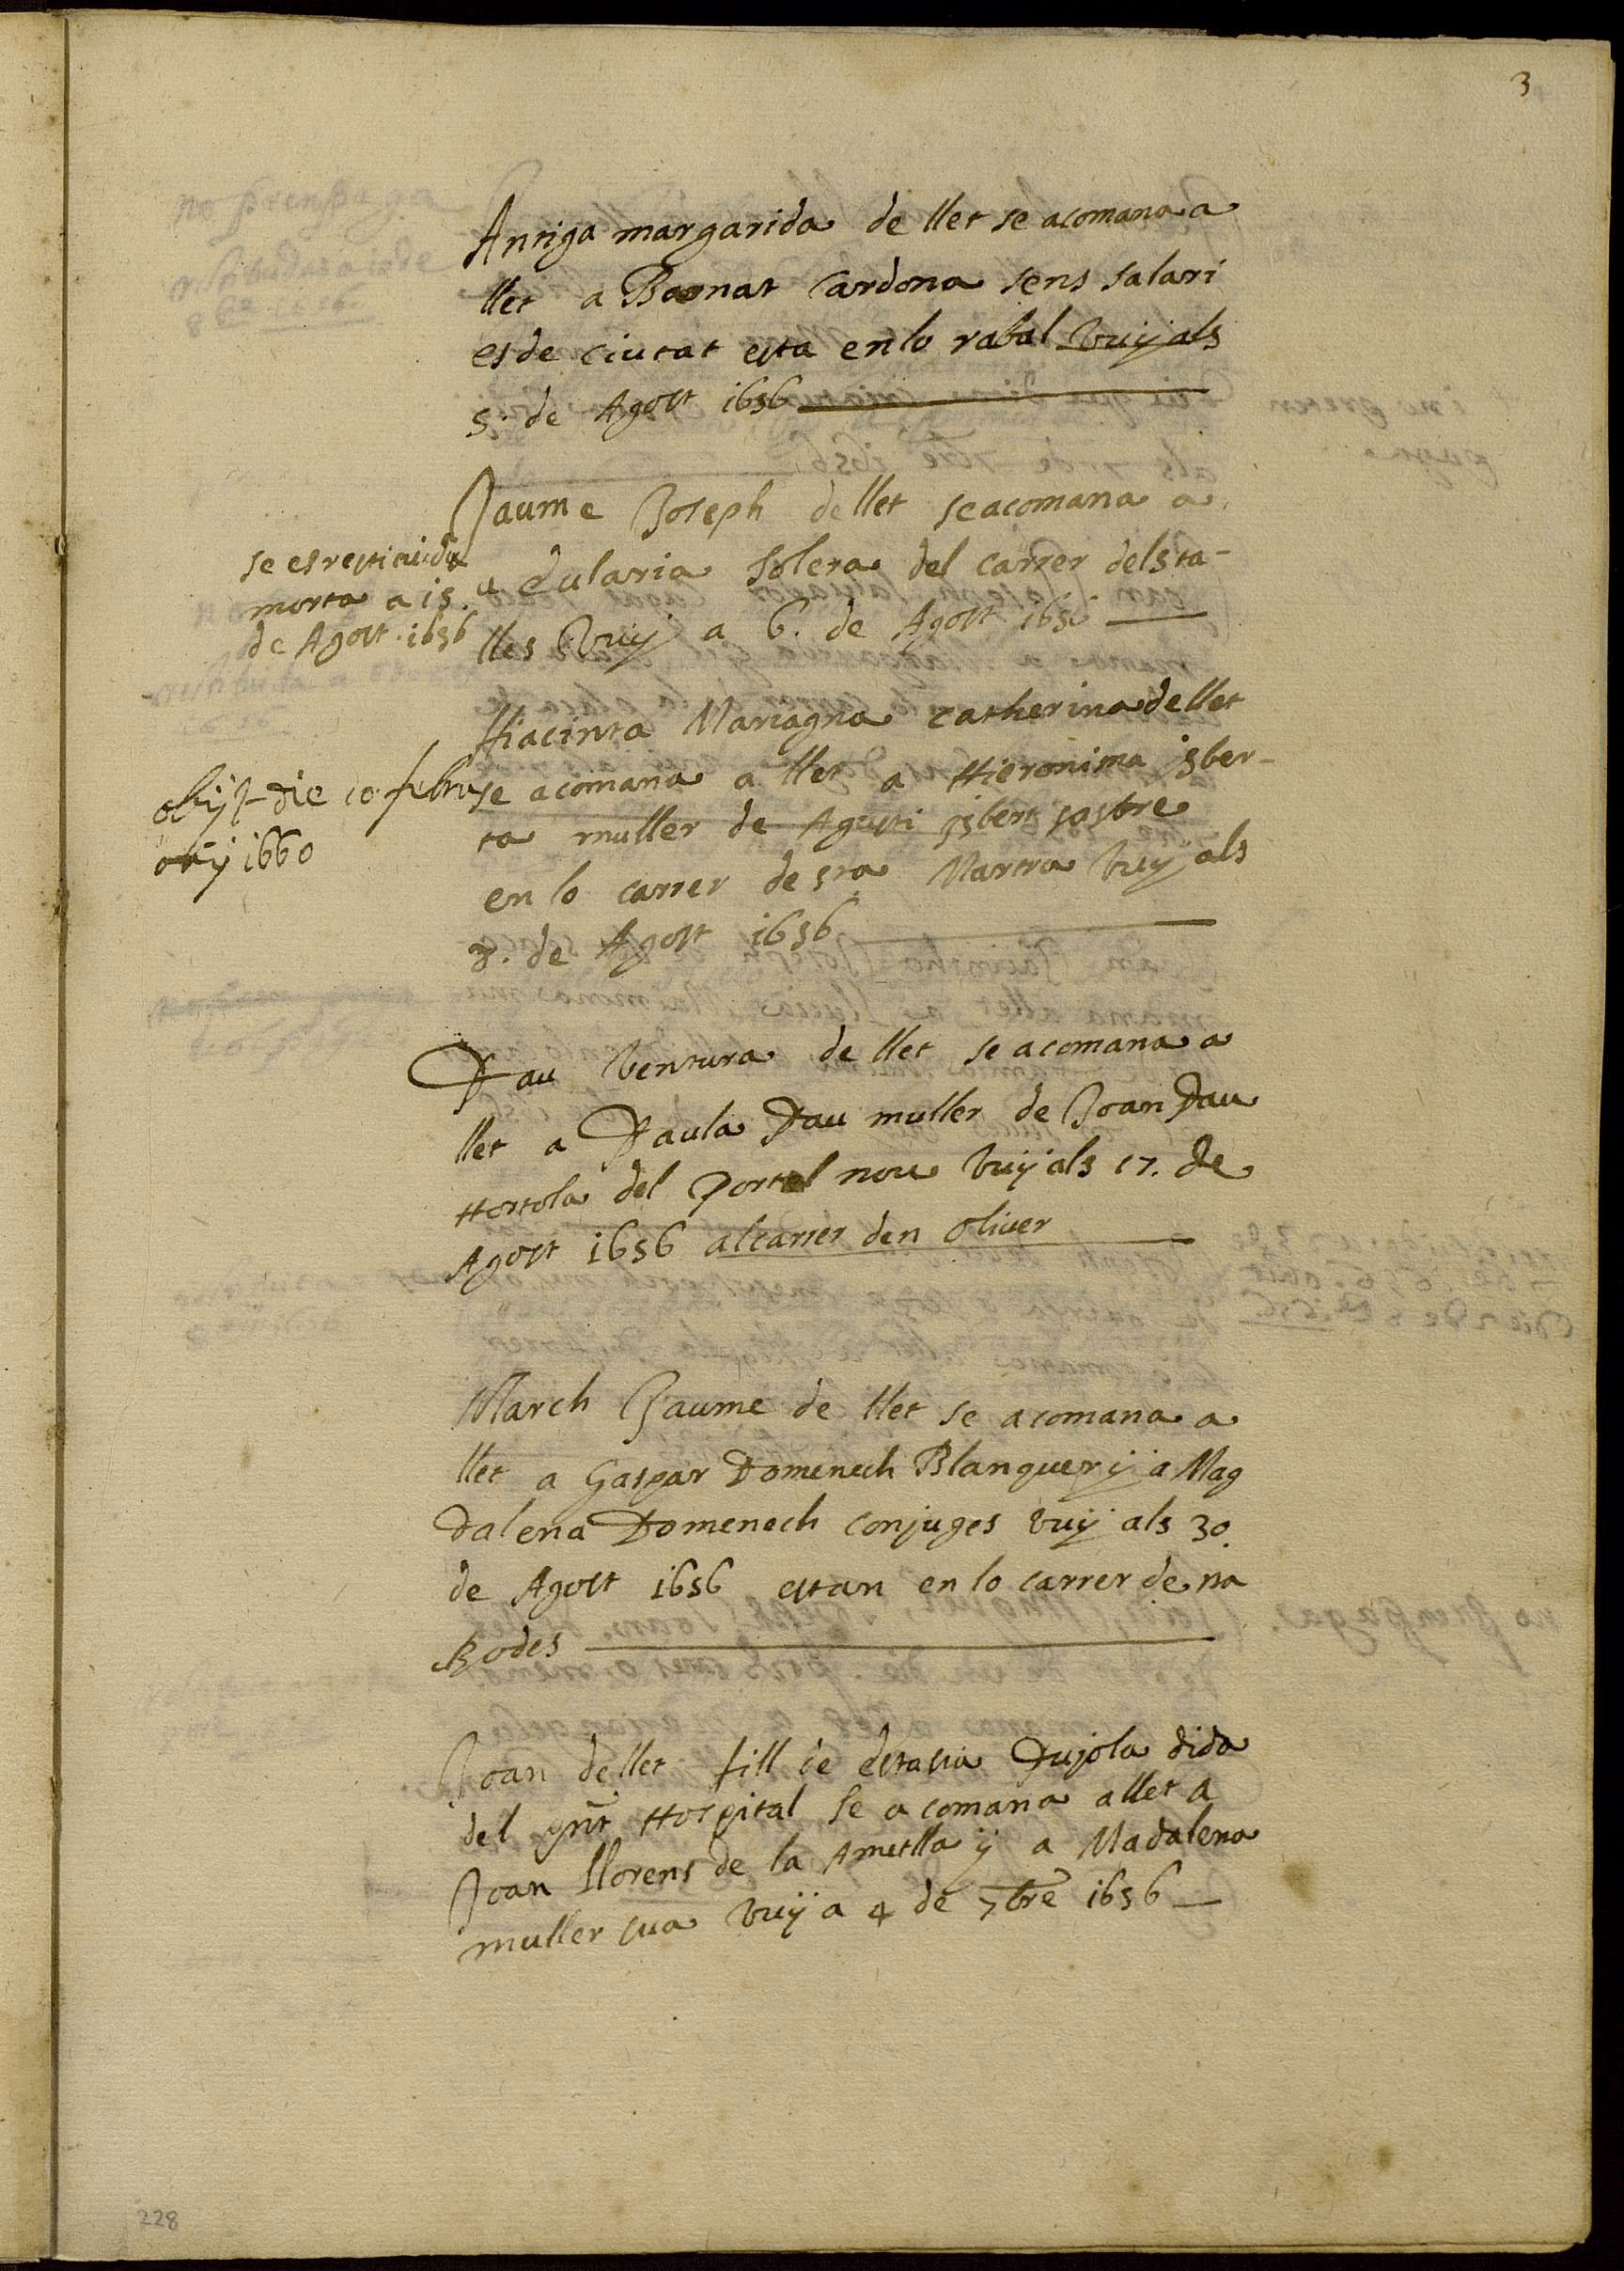 3
Antiga margarida de llet se acomana a
llet a Bernat Cardona sens salari
es de ciutat esta en lo rabal vuy als
5. de Agost 1656
Jaume Joseph de llet se acomana a
eularia Solera del carrer dels ta-
lles vuy a 6. de Agost 1656
se es restituida
morta a 15.
de Agost 1656
Hiacinta Mariagna Catherina de llet
se acomana a llet a Hieronima isber-
ta muller de Agusti isbert sastre
en lo carrer de sta Martra vuy als
8. de Agost 1656
obijt die 10 febru
arij 1660
Pau Ventura de llet se acomana a
llet a Paula Pau muller de Joan Pau
Hortola del Portal nou vuy als 17. de
Agost 1656 al carrer den Oliver
March Jaume de llet se acomana a
llet a Gaspar Domenech Blanquer y a Mag
dalena Domenech conjuges vuy als 30.
de Agost 1656 estan en lo carrer de na
Rodes
Joan de llet fill de Pujola dida
del pnt Hospital se acomana a llet a
Joan Llorens de la Ametlla y a Madalena
muller sua vuy a 4 de 7bre 1656
228